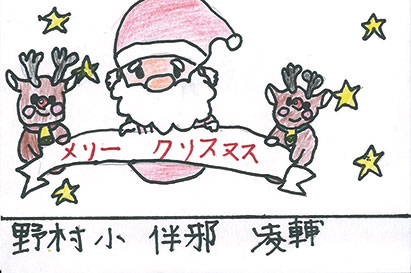 メリー クリスマス
野村小 伴邪 凌轉